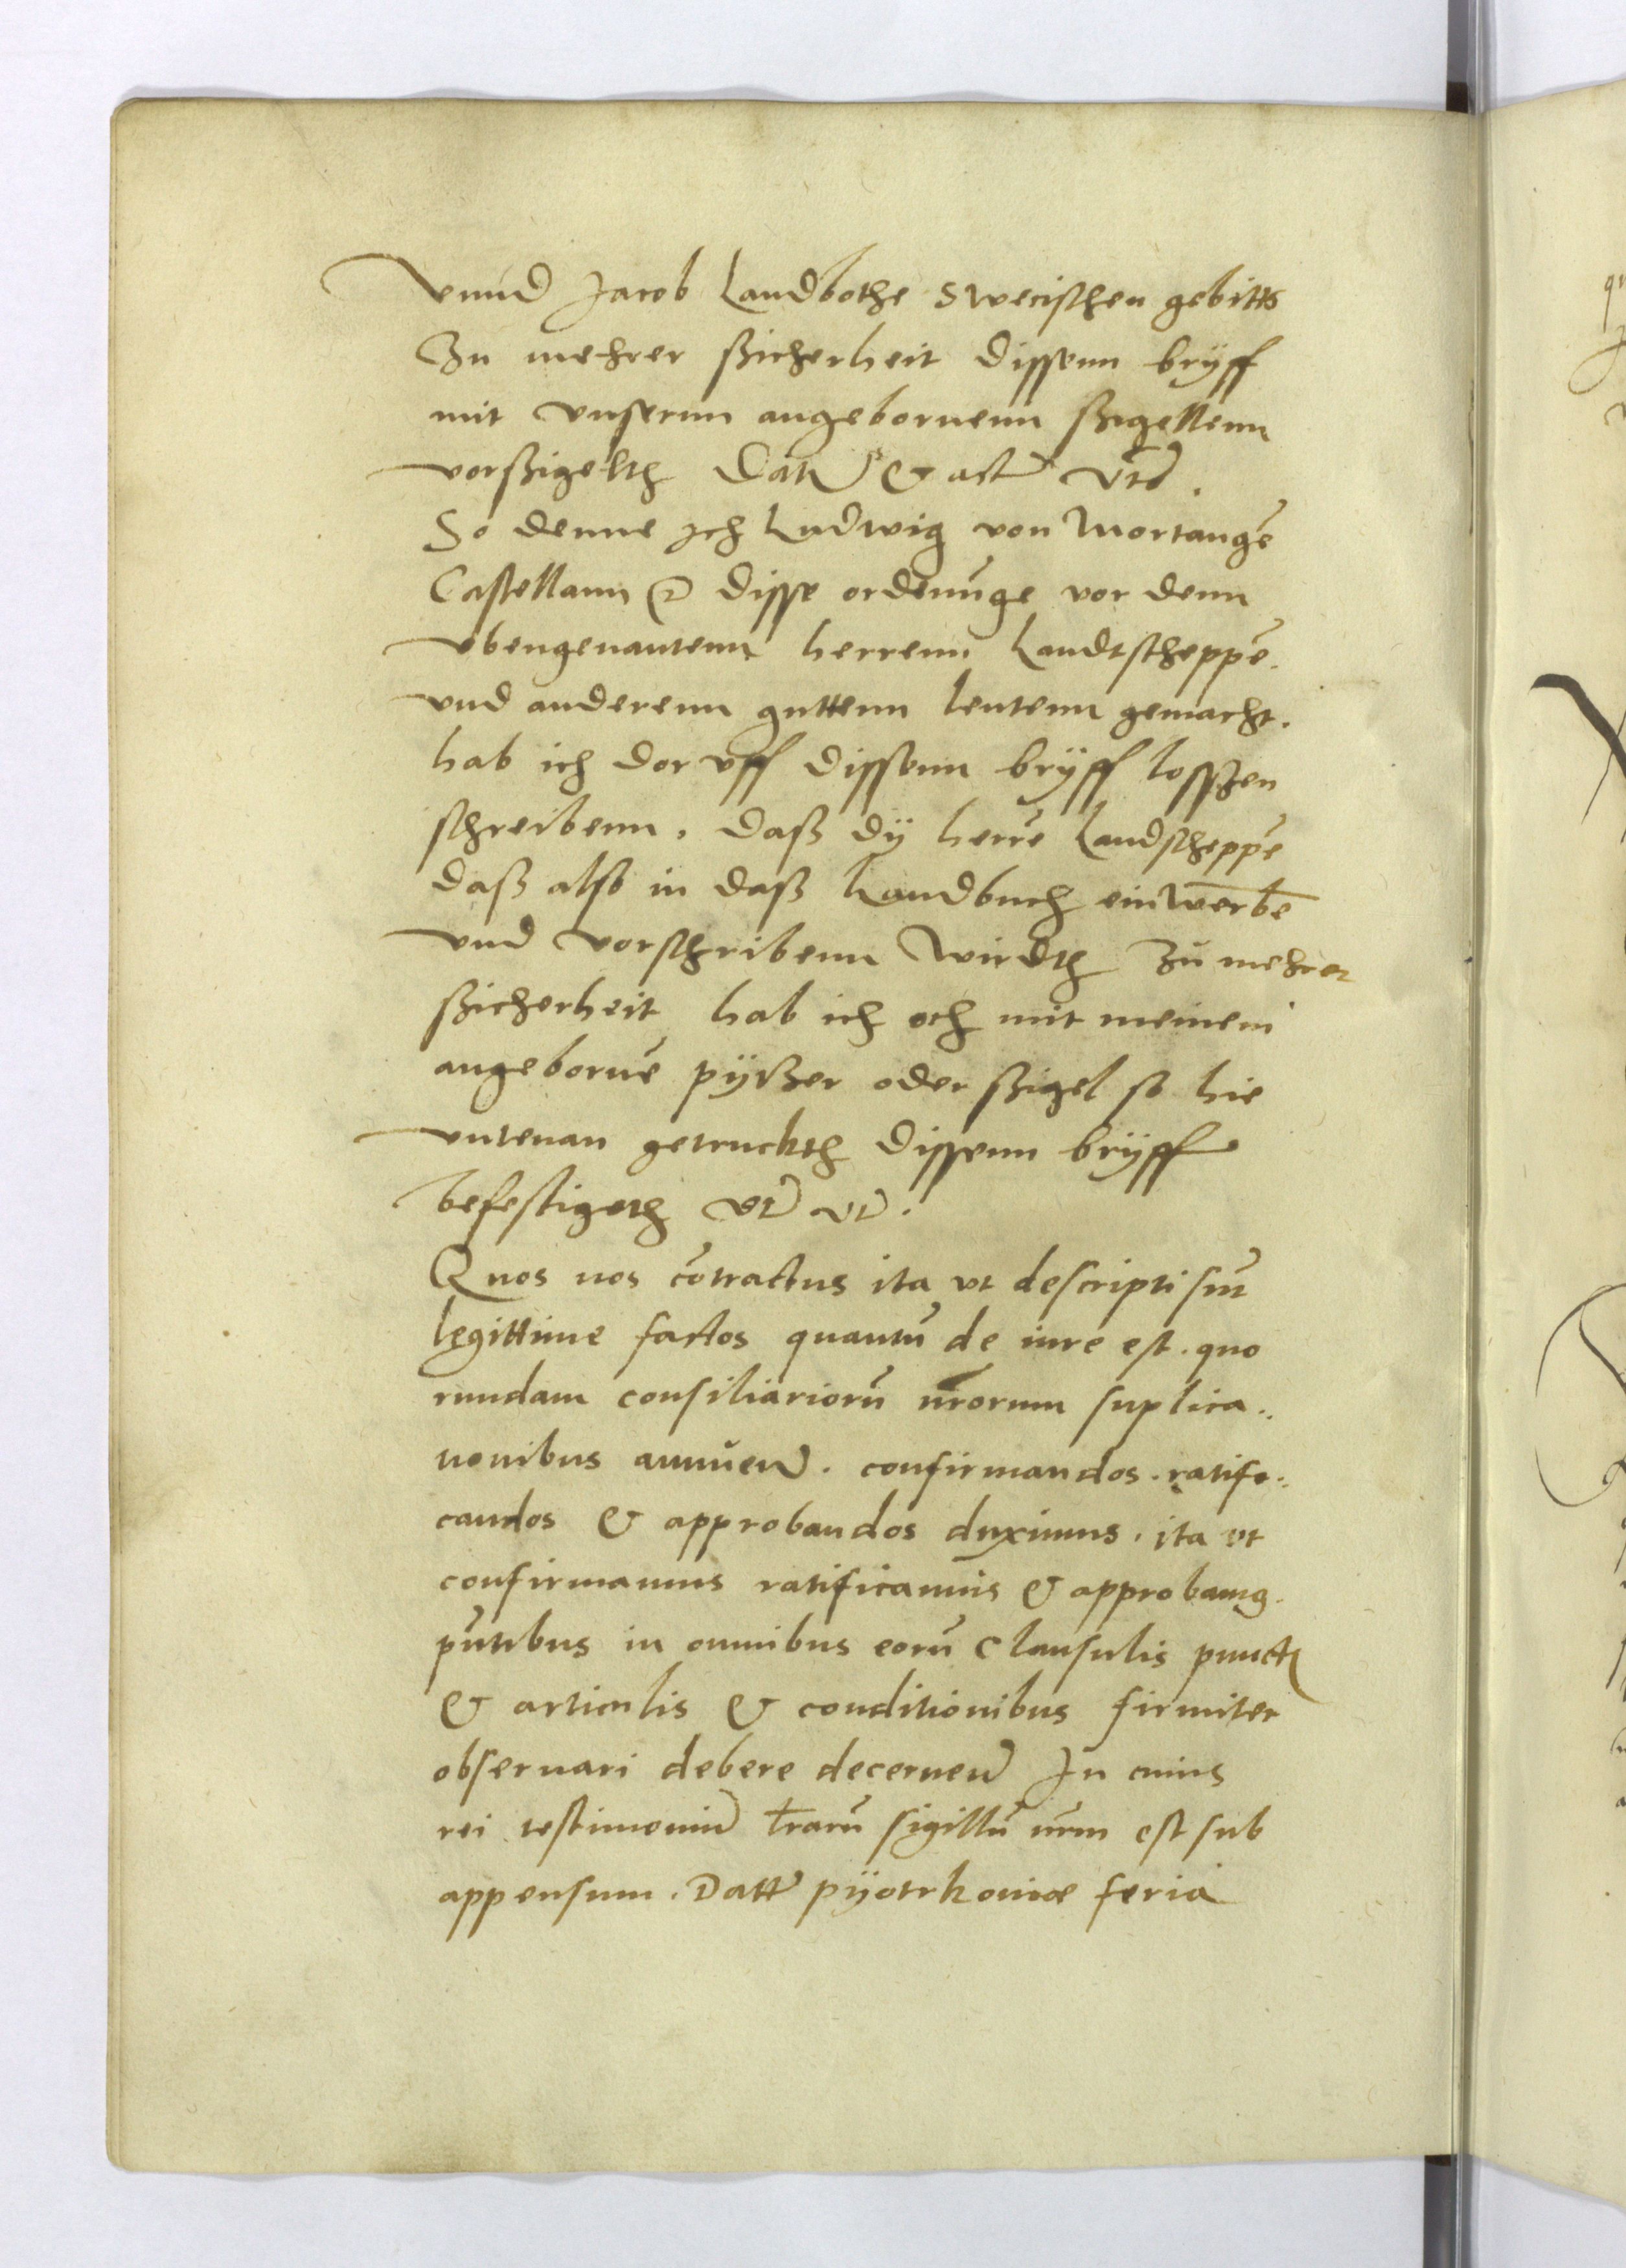 vnnd Jacob Landbothe Swecischen gebitts
Zu mehrer ßicherheit dissenn bryff
mit vnsernn angebornenn ßigellenn
vorßigelth Dat & act
So denne Jch Ludwig von Mortangē
Castellann disse ordenūge vor denn
obengenantenn herrenn Landtscheppē.
vnd anderenn guttenn leutenn gemacht.
hab ich dor vff dissenn bryff losszen
schreibenn. daß dÿ herrē Landscheppē
daß also in daß Landbuch
vnd vorschribenn wirdth Zů mehrer
ßicherheit hab ich och mit meinem
angebornē pÿtzer oder ßigel so hie
vntenan getruckth dissenn brÿff
befestigeth
Quos nos cōtractus ita vt descripti sūt
legittime factos quantū de iure est. quo
rundam consiliariorū nr̄orum suplica..
tionibus annuen. confirmandos. ratifi..
candos & approbandos duximus. ita vt
confirmamus ratificamus & approbamꝯ.
pn̄tibus in omnibus eorū Clausulis punctꝭ
& articulis & conditionibus firmiter
obseruari debere decernen Jn cuius
rei testimoniū lr̄arū sigillū nr̄m est sub
appensum. Datt pÿotrkoniæ feria